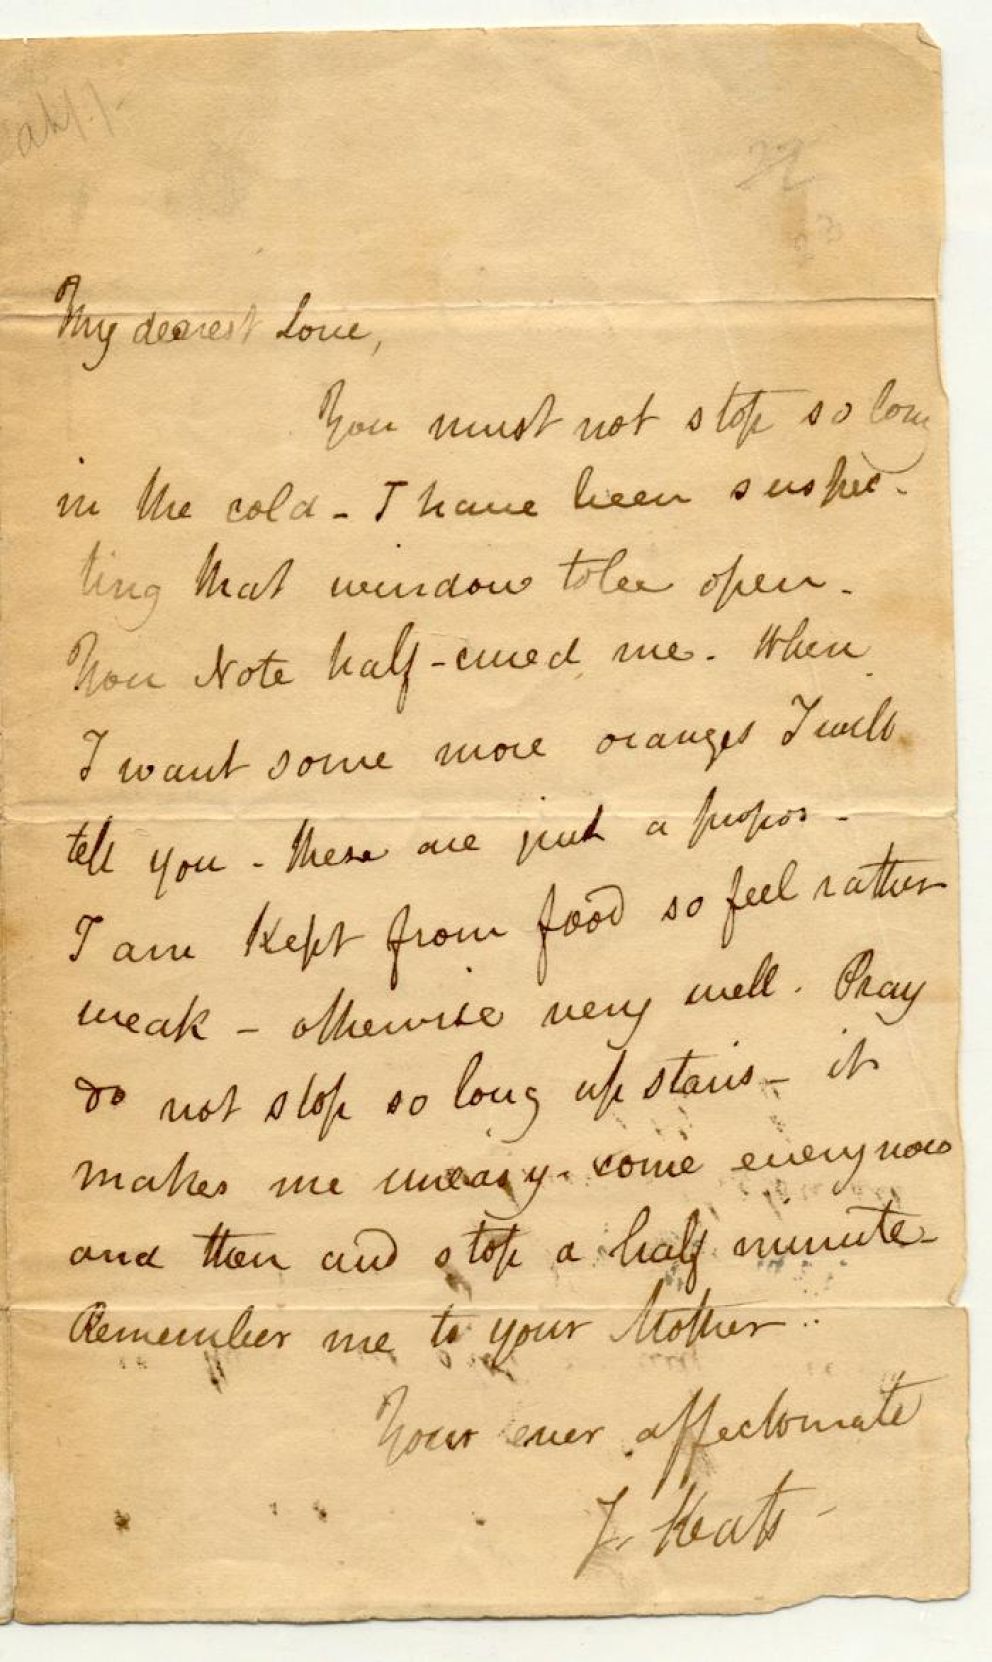 My dearest Love,
You must not stop so long
in the cold - I have been suspec-
ting that window to be open.
You Note half-cured me. When
I want some more oranges I will
tell you - these are just a propos -
I am kept from food so feel rather
weak - otherwise very well. Pray
do not stop so long up stairs - it
makes me uneasy - come every now
and then and stop a half minute -
Remember me to your Mother ..
Your ever affectionate
J. Keats -